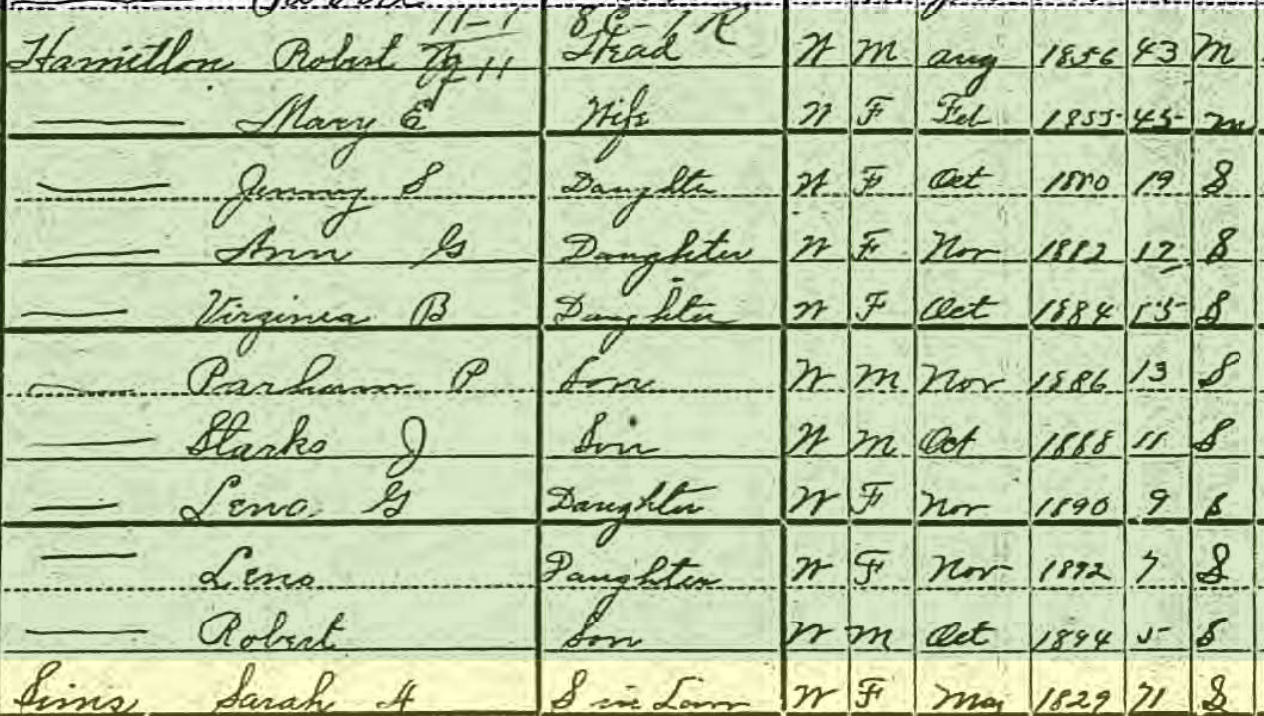 11-1 8C-1R
Hamilton Robert 11 Head W M aug 1856 43 M
Mary E Wife W F Feb 1855 45 m
Jenny S Daughter W F Oct 1880 19 S
Ann G Daughter W F Nov 1882 17 S
Virginia B Daughter W F Oct 1884 15 S
Parham P Son W M Nov 1886 13 S
Starks J Son W M Oct 1888 11 S
Lena G Daughter W F Nov 1890 9 S
Lena Daughter W F Nov 1892 7 S
Robert Son W M Oct 1894 5 S
Sims Sarah H S in Law W F May 1829 71 S